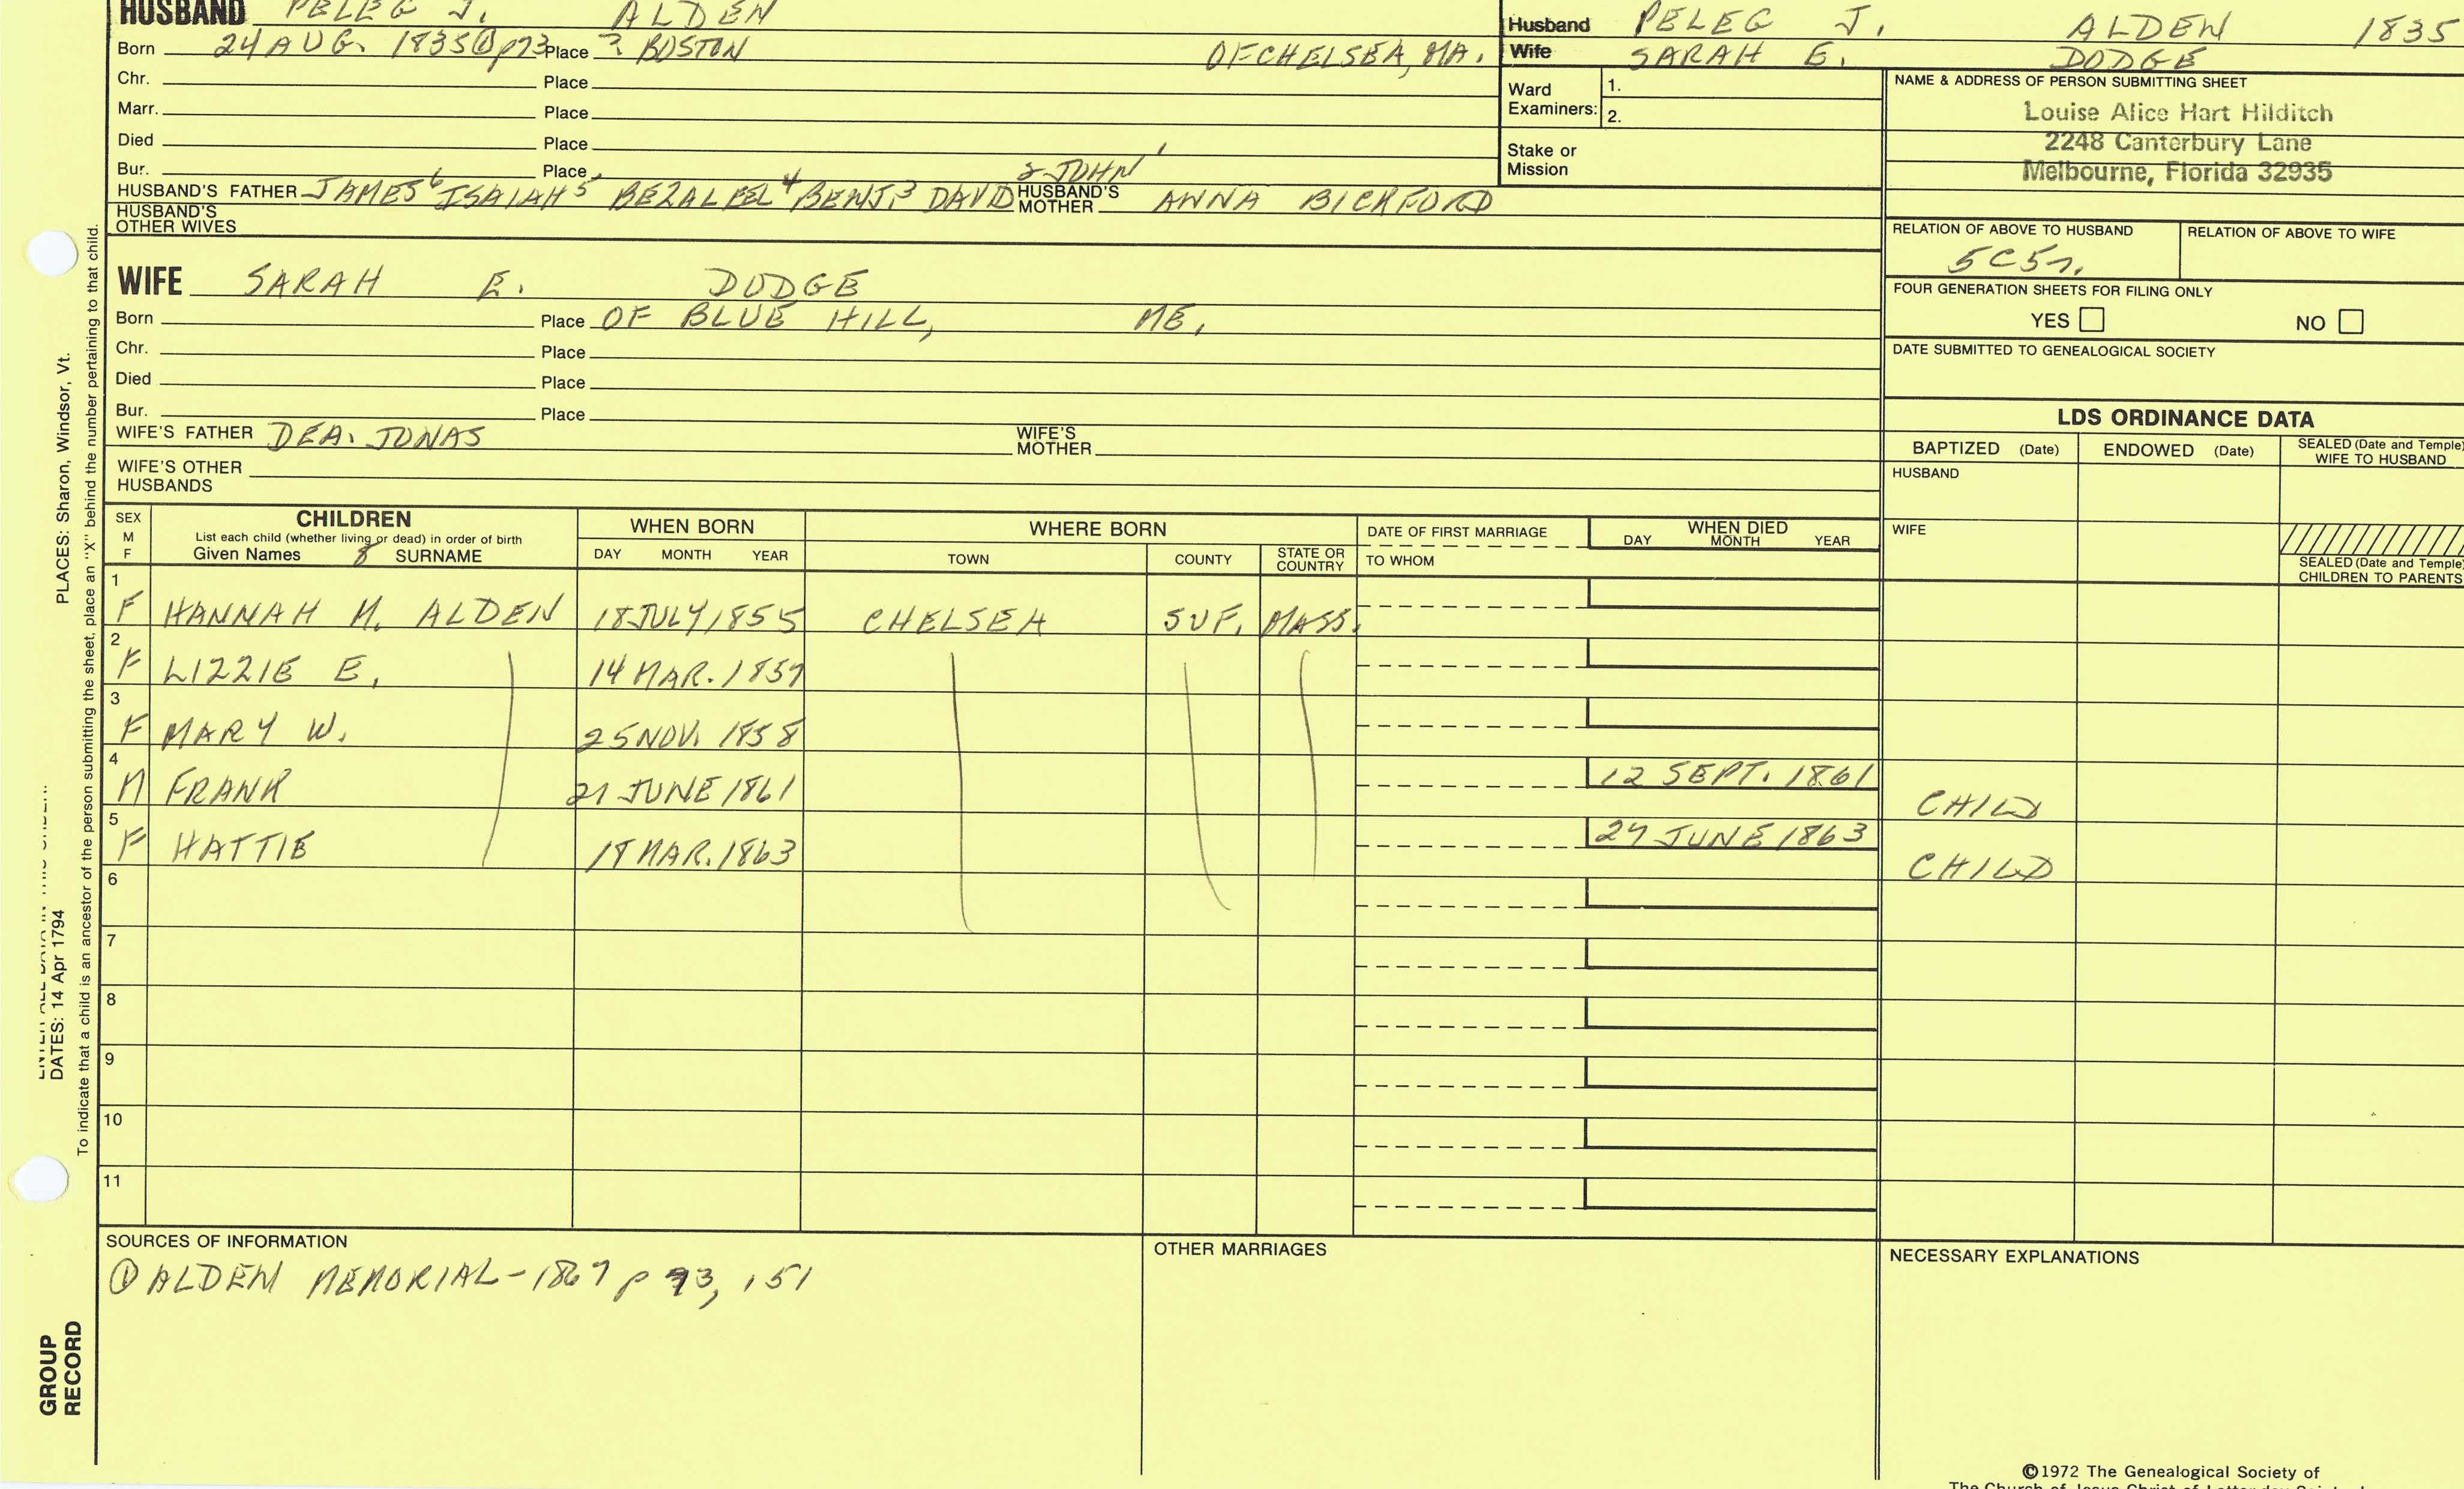 HUSBAND PELEG J. ALDEN
Born 24 AUG. 1835 ① p73 Place ? BOSTON OF CHELSEA, MA.
Chr. Place
Marr. Place
Died Place
Bur. Place
HUSBAND'S FATHER JAMES⁶ ISAIAH⁵ BEZALEEL⁴ BENJ.³ DAVID² JOHN' HUSBAND'S MOTHER ANNA BICKFORD
HUSBAND'S
OTHER WIVES
WIFE SARAH E. DODGE
Born Place OF BLUE HILL, ME.
Chr. Place
Died Place
Bur. Place
WIFE'S FATHER DEA. JONAS WIFE'S MOTHER
WIFE'S OTHER
HUSBANDS
Husband PELEG J. ALDEN 1835
Wife SARAH E. DODGE
Ward
Examiners:
1.
2.
Stake or
Mission
NAME & ADDRESS OF PERSON SUBMITTING SHEET
Louise Alice Hart Hilditch
2248 Canterbury Lane
Melbourne, Florida 32935
RELATION OF ABOVE TO HUSBAND RELATION OF ABOVE TO WIFE
5C5r.
FOUR GENERATION SHEETS FOR FILING ONLY
YES NO
DATE SUBMITTED TO GENEALOGICAL SOCIETY
LDS ORDINANCE DATA
BAPTIZED (Date) ENDOWED (Date) SEALED (Date and Temple)
WIFE TO HUSBAND
HUSBAND
WIFE
SEALED (Date and Temple)
CHILDREN TO PARENTS
SEX
M
F
CHILDREN
List each child (whether living or dead) in order of birth
Given Names 8 SURNAME
WHEN BORN
DAY MONTH YEAR
WHERE BORN
TOWN COUNTY STATE OR
COUNTRY
DATE OF FIRST MARRIAGE
TO WHOM
WHEN DIED
DAY MONTH YEAR
1
F HANNAH M. ALDEN 18 JULY 1855 CHELSEA SUF. MASS.
2
F LIZZIE E. 14 MAR. 1857
3
F MARY W. 25 NOV. 1858
4
M FRANK 21 JUNE 1861 12 SEPT. 1861 CHILD
5
F HATTIE MAR. 1863 JUNE 1863 CHILD
6
7
8
9
10
11
SOURCES OF INFORMATION
① ALDEN MEMORIAL - 1867 p 73, 151
OTHER MARRIAGES
NECESSARY EXPLANATIONS
©1972 The Genealogical Society of
The Church of Jesus Christ of Latter-day Saints
PLACES: Sharon, Windsor, Vt.
DATES: 14 Apr 1794
To indicate that a child is an ancestor of the person submitting the sheet, place an "X" behind the number pertaining to that child.
GROUP
RECORD